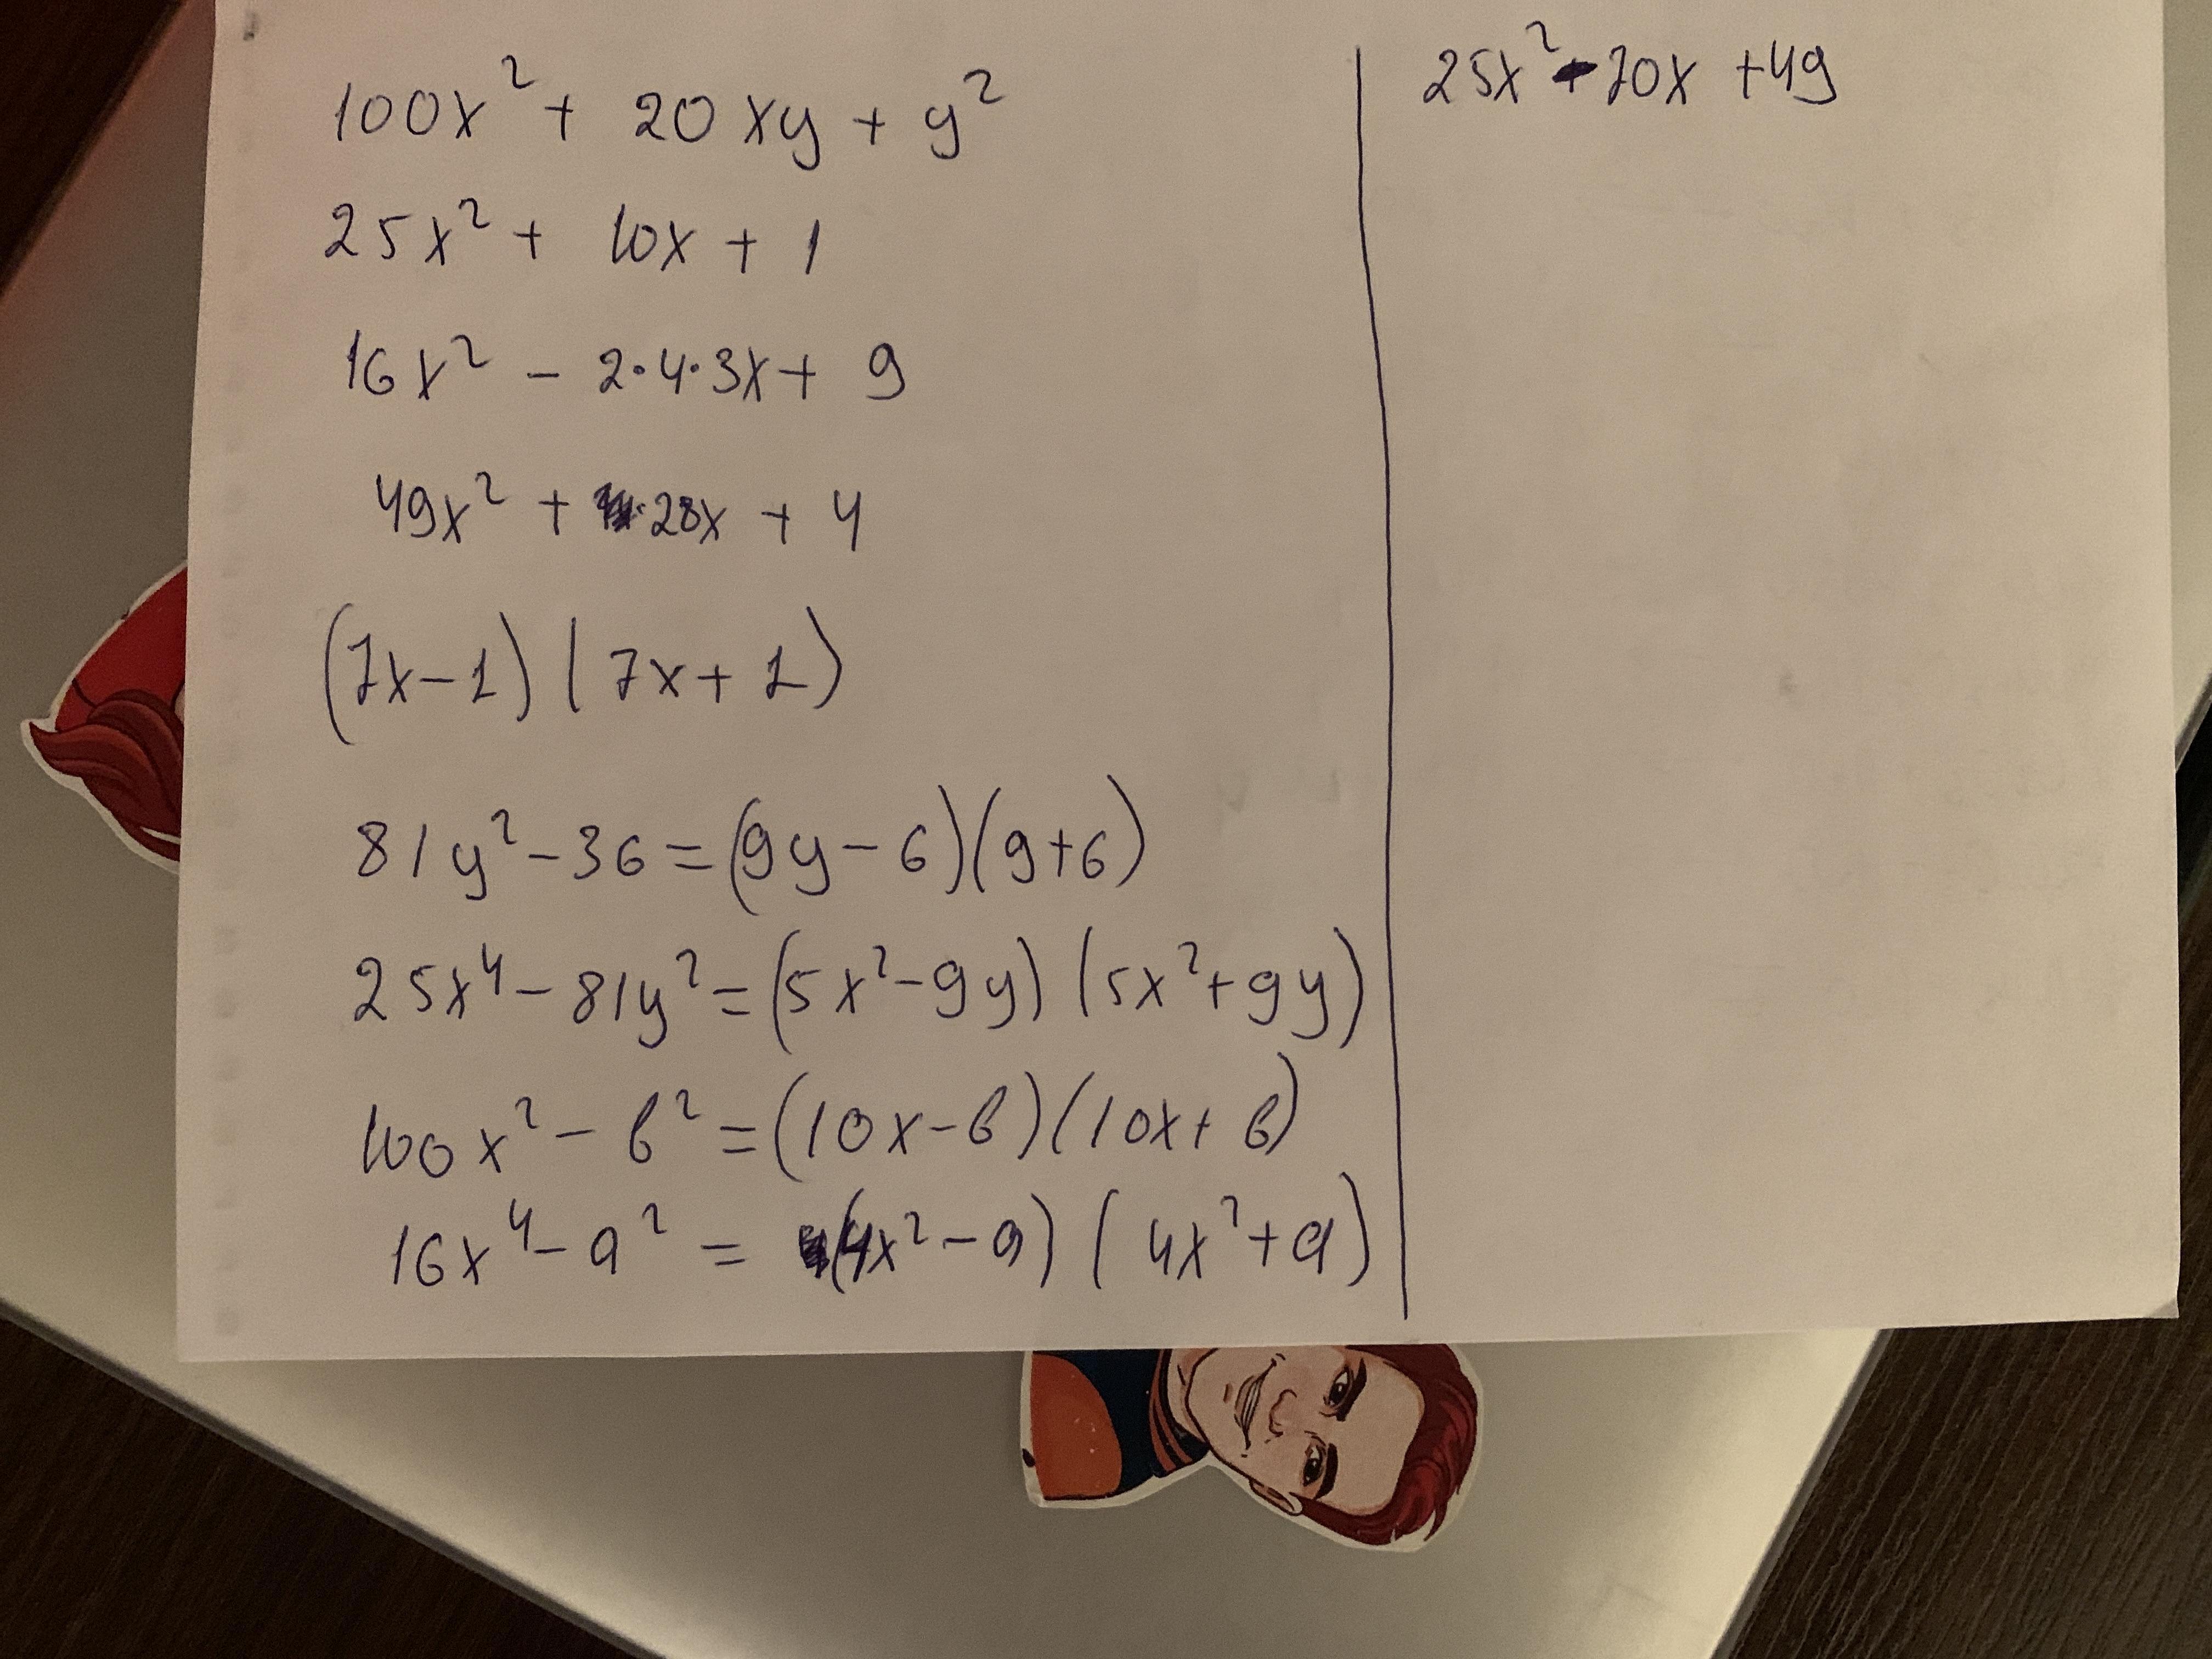 100x² + 20xy + y²
25x² + 10x + 1
16x² - 2·4·3x + 9
49x² + 28x + 4
(7x-1)(7x+1)
81y²-36=(9y-6)(9+6)
25x⁴-81y²=(5x²-9y)(5x²+9y)
100x²-b²=(10x-b)(10x+b)
16x⁴-a² = (4x²-a)(4x²+a)
25x²-70x+49